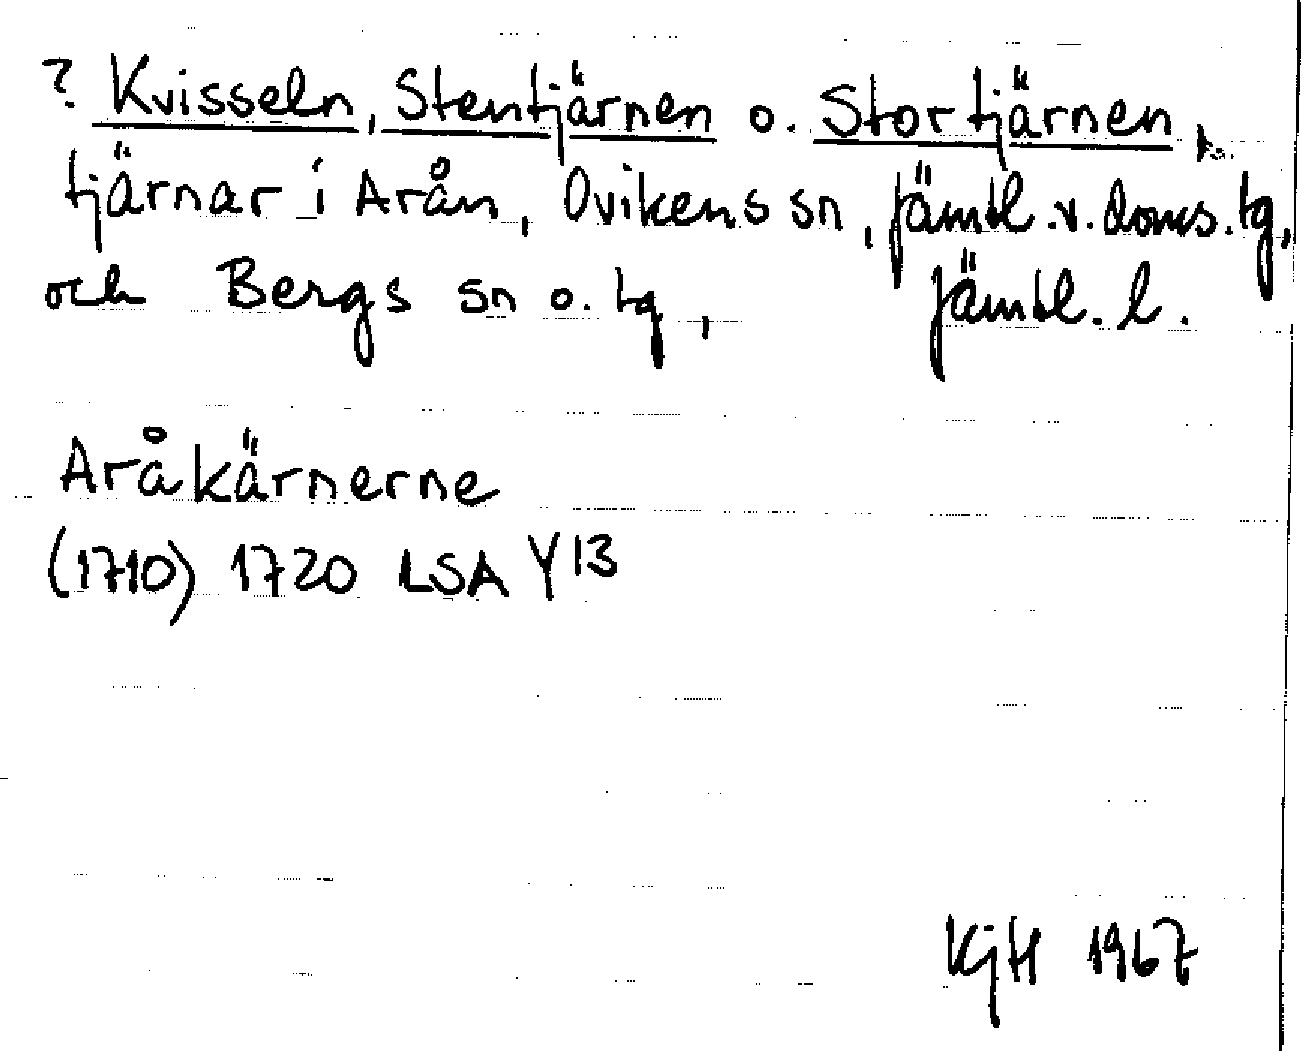 ? Kvisseln, Stentjärnen o. Stortjärnen,
tjärnar i Arån, Ovikens sn, Jämtl.v.doms.tg,
och Bergs sn o. tg, Jämtl. l.
Aråkärnerne
(1710) 1720 LSA Y13
KjH 1967